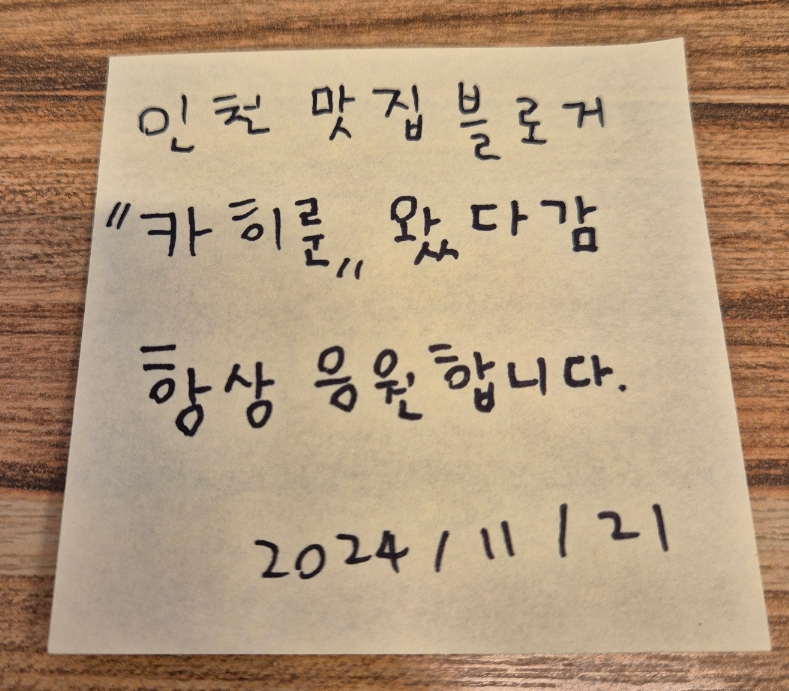 인천 맛집 블로거
"카히룬" 왔다감
항상 응원합니다.
2024/11/21